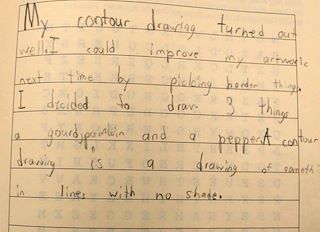 My contour drawing turned out
well. I could improve my artwork
next time by picking harder things.
I dicided to draw 3 things
a gourd, pumkin and a pepper. A contour
drawing is a drawing of
in lines with no shade.